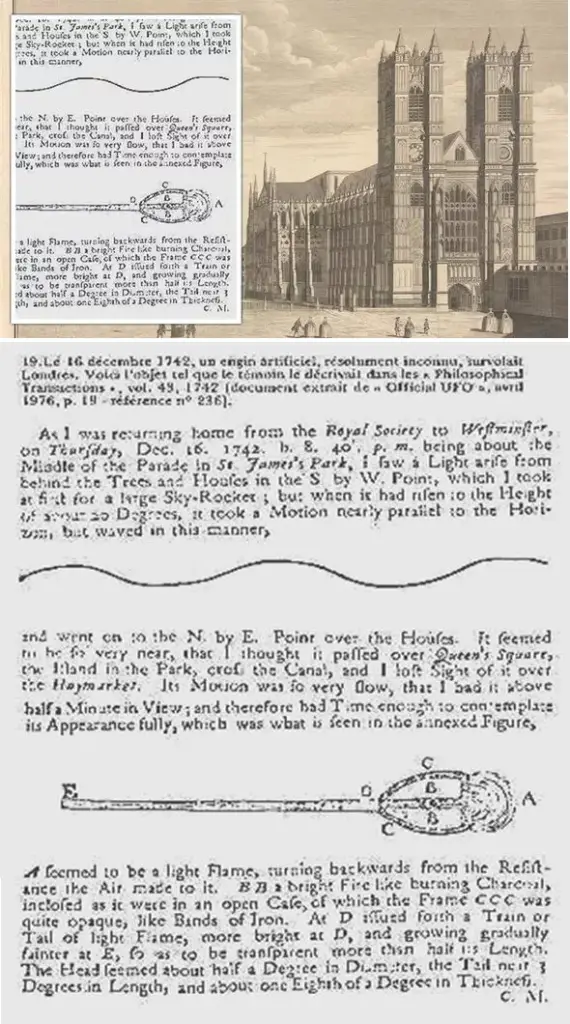 Parade in St. James's Park, I saw a Light arise from
s and Houses in the S. by W. Point, which I took
ge Sky-Rocket; but when it had risen to the Height
rees, it took a Motion nearly parallel to the Hori-
in this manner,
the N. by E. Point over the Houses. It seemed
near, that I thought it passed over Queen's Square,
Park, cross the Canal, and I lost Sight of it over
Its Motion was so very slow, that I had it above
View; and therefore had Time enough to contemplate
ully, which was what is seen in the annexed Figure,
D
C
B
B
C
A
a light Flame, turning backwards from the Resist-
ade to it. BB a bright Fire like burning Charcoal,
re in an open Case, of which the Frame CCC was
ike Bands of Iron. At D issued forth a Train or
lame, more bright at D, and growing gradually
as to be transparent more than half its Length.
d about half a Degree in Diameter, the Tail near 3
gth, and about one Eighth of a Degree in Thickness.
C. M.
19. Le 16 décembre 1742, un engin artificiel, résolument inconnu, survolait
Londres. Voici l'objet tel que le témoin le décrivait dans les « Philosophical
Transactions », vol. 43, 1742 (document extrait de « Official UFO », avril
1976, p. 19 - référence n° 236).
As I was returning home from the Royal Society to Westminster,
on Thursday, Dec. 16. 1742. h. 8. 40'. p. m. being about the
Middle of the Parade in St. James's Park, I saw a Light arise from
behind the Trees and Houses in the S. by W. Point, which I took
at first for a large Sky-Rocket; but when it had risen to the Height
of about 20 Degrees, it took a Motion nearly parallel to the Hori-
zon, but waved in this manner,
and went on to the N. by E. Point over the Houses. It seemed
to be so very near, that I thought it passed over Queen's Square,
the Island in the Park, cross the Canal, and I lost Sight of it over
the Haymarket. Its Motion was so very slow, that I had it above
half a Minute in View; and therefore had Time enough to contemplate
its Appearance fully, which was what is seen in the annexed Figure,
E
D
C
B
B
C
A
A seemed to be a light Flame, turning backwards from the Resist-
ance the Air made to it. BB a bright Fire like burning Charcoal,
inclosed as it were in an open Case, of which the Frame CCC was
quite opaque, like Bands of Iron. At D issued forth a Train or
Tail of light Flame, more bright at D, and growing gradually
fainter at E, so as to be transparent more than half its Length.
The Head seemed about half a Degree in Diameter, the Tail near 3
Degrees in Length, and about one Eighth of a Degree in Thickness.
C. M.